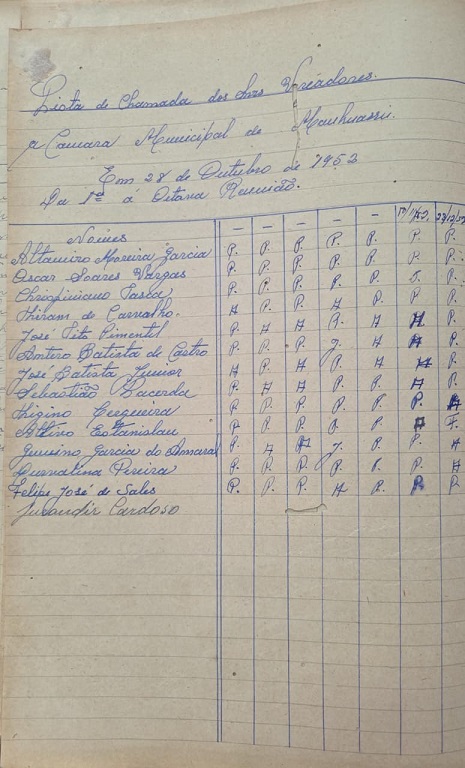 Lista de Chamada dos Snrs Vereadores.
a Camara Municipal de Manhuassú.
Em 28 de Outubro de 1952
Da 1ª á Oitava Reunião.
Nomes - - - - -
Altamiro Moreira Garcia P. P. P. P. P. P. P.
Oscar Soares Vargas P. P. P. P. P. P. P.
Chrispiniano P. P. P. P. P. P.
Hiram de Carvalho. A P. P. A P. P P.
José Tito Pimentil P. A A P. A A P.
Antero Batista de Castro P. P. P. J. A A P.
José Batista Junior A P. A P. A A P.
Sebastião Lacerda P. A A P. P. A P.
Ligino Cerqueira P. P. P. P. P. P. A
Altivo Estanislau P. P. P. P. P. A F.
Juvesino Garcia do Amaral P. A A J. P. P. A
Durvalina Pereira P. P. P. P. P. P. A
Felipe José de Sales P. P. P. A P. P P
Jurandir Cardoso